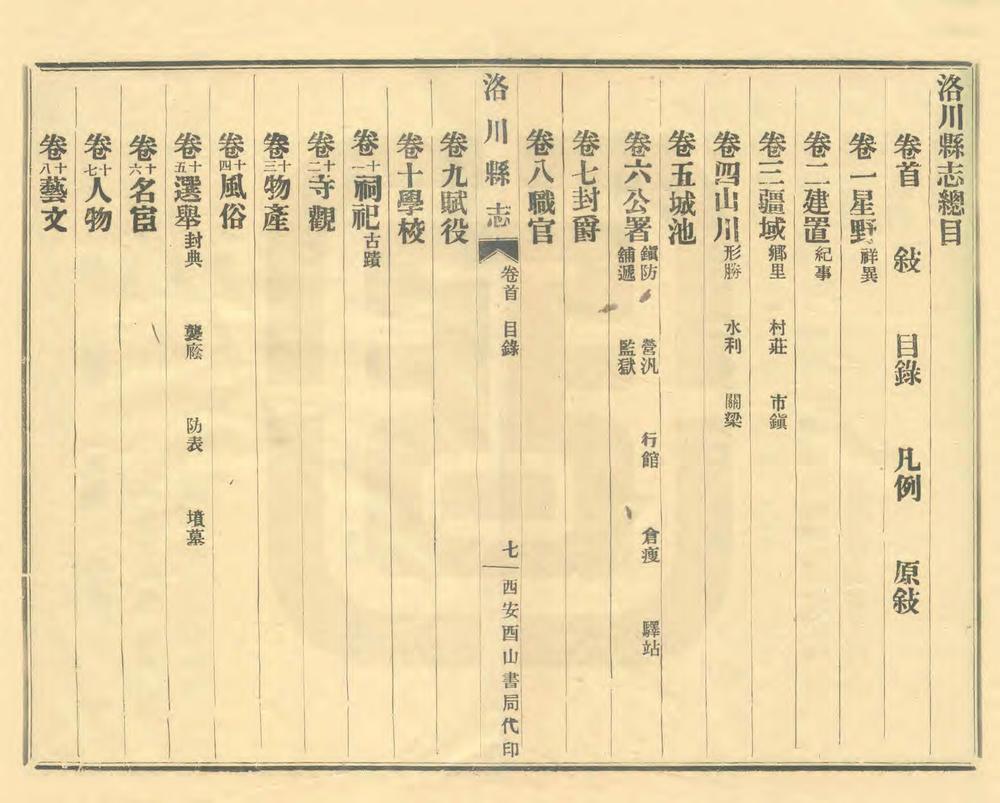 洛川縣志總目
卷首 敍 目錄 凡例 原敍
卷一星野 祥異
卷二建置 紀事
卷三疆域 鄉里 村莊 市鎭
卷四山川 形勝 水利 關梁
卷五城池
卷六公署 鎭防 營汛 行館 倉廋 驛站
舖遞 監獄
卷七封爵
卷八職官
洛川縣志 卷首 目錄 七 西安酉山書局代印
卷九賦役
卷十學校
卷十一祠祀 古蹟
卷十二寺觀
卷十三物產
卷十四風俗
卷十五選舉 封典 襲廕 防表 墳墓
卷十六名宦
卷十七人物
卷十八藝文